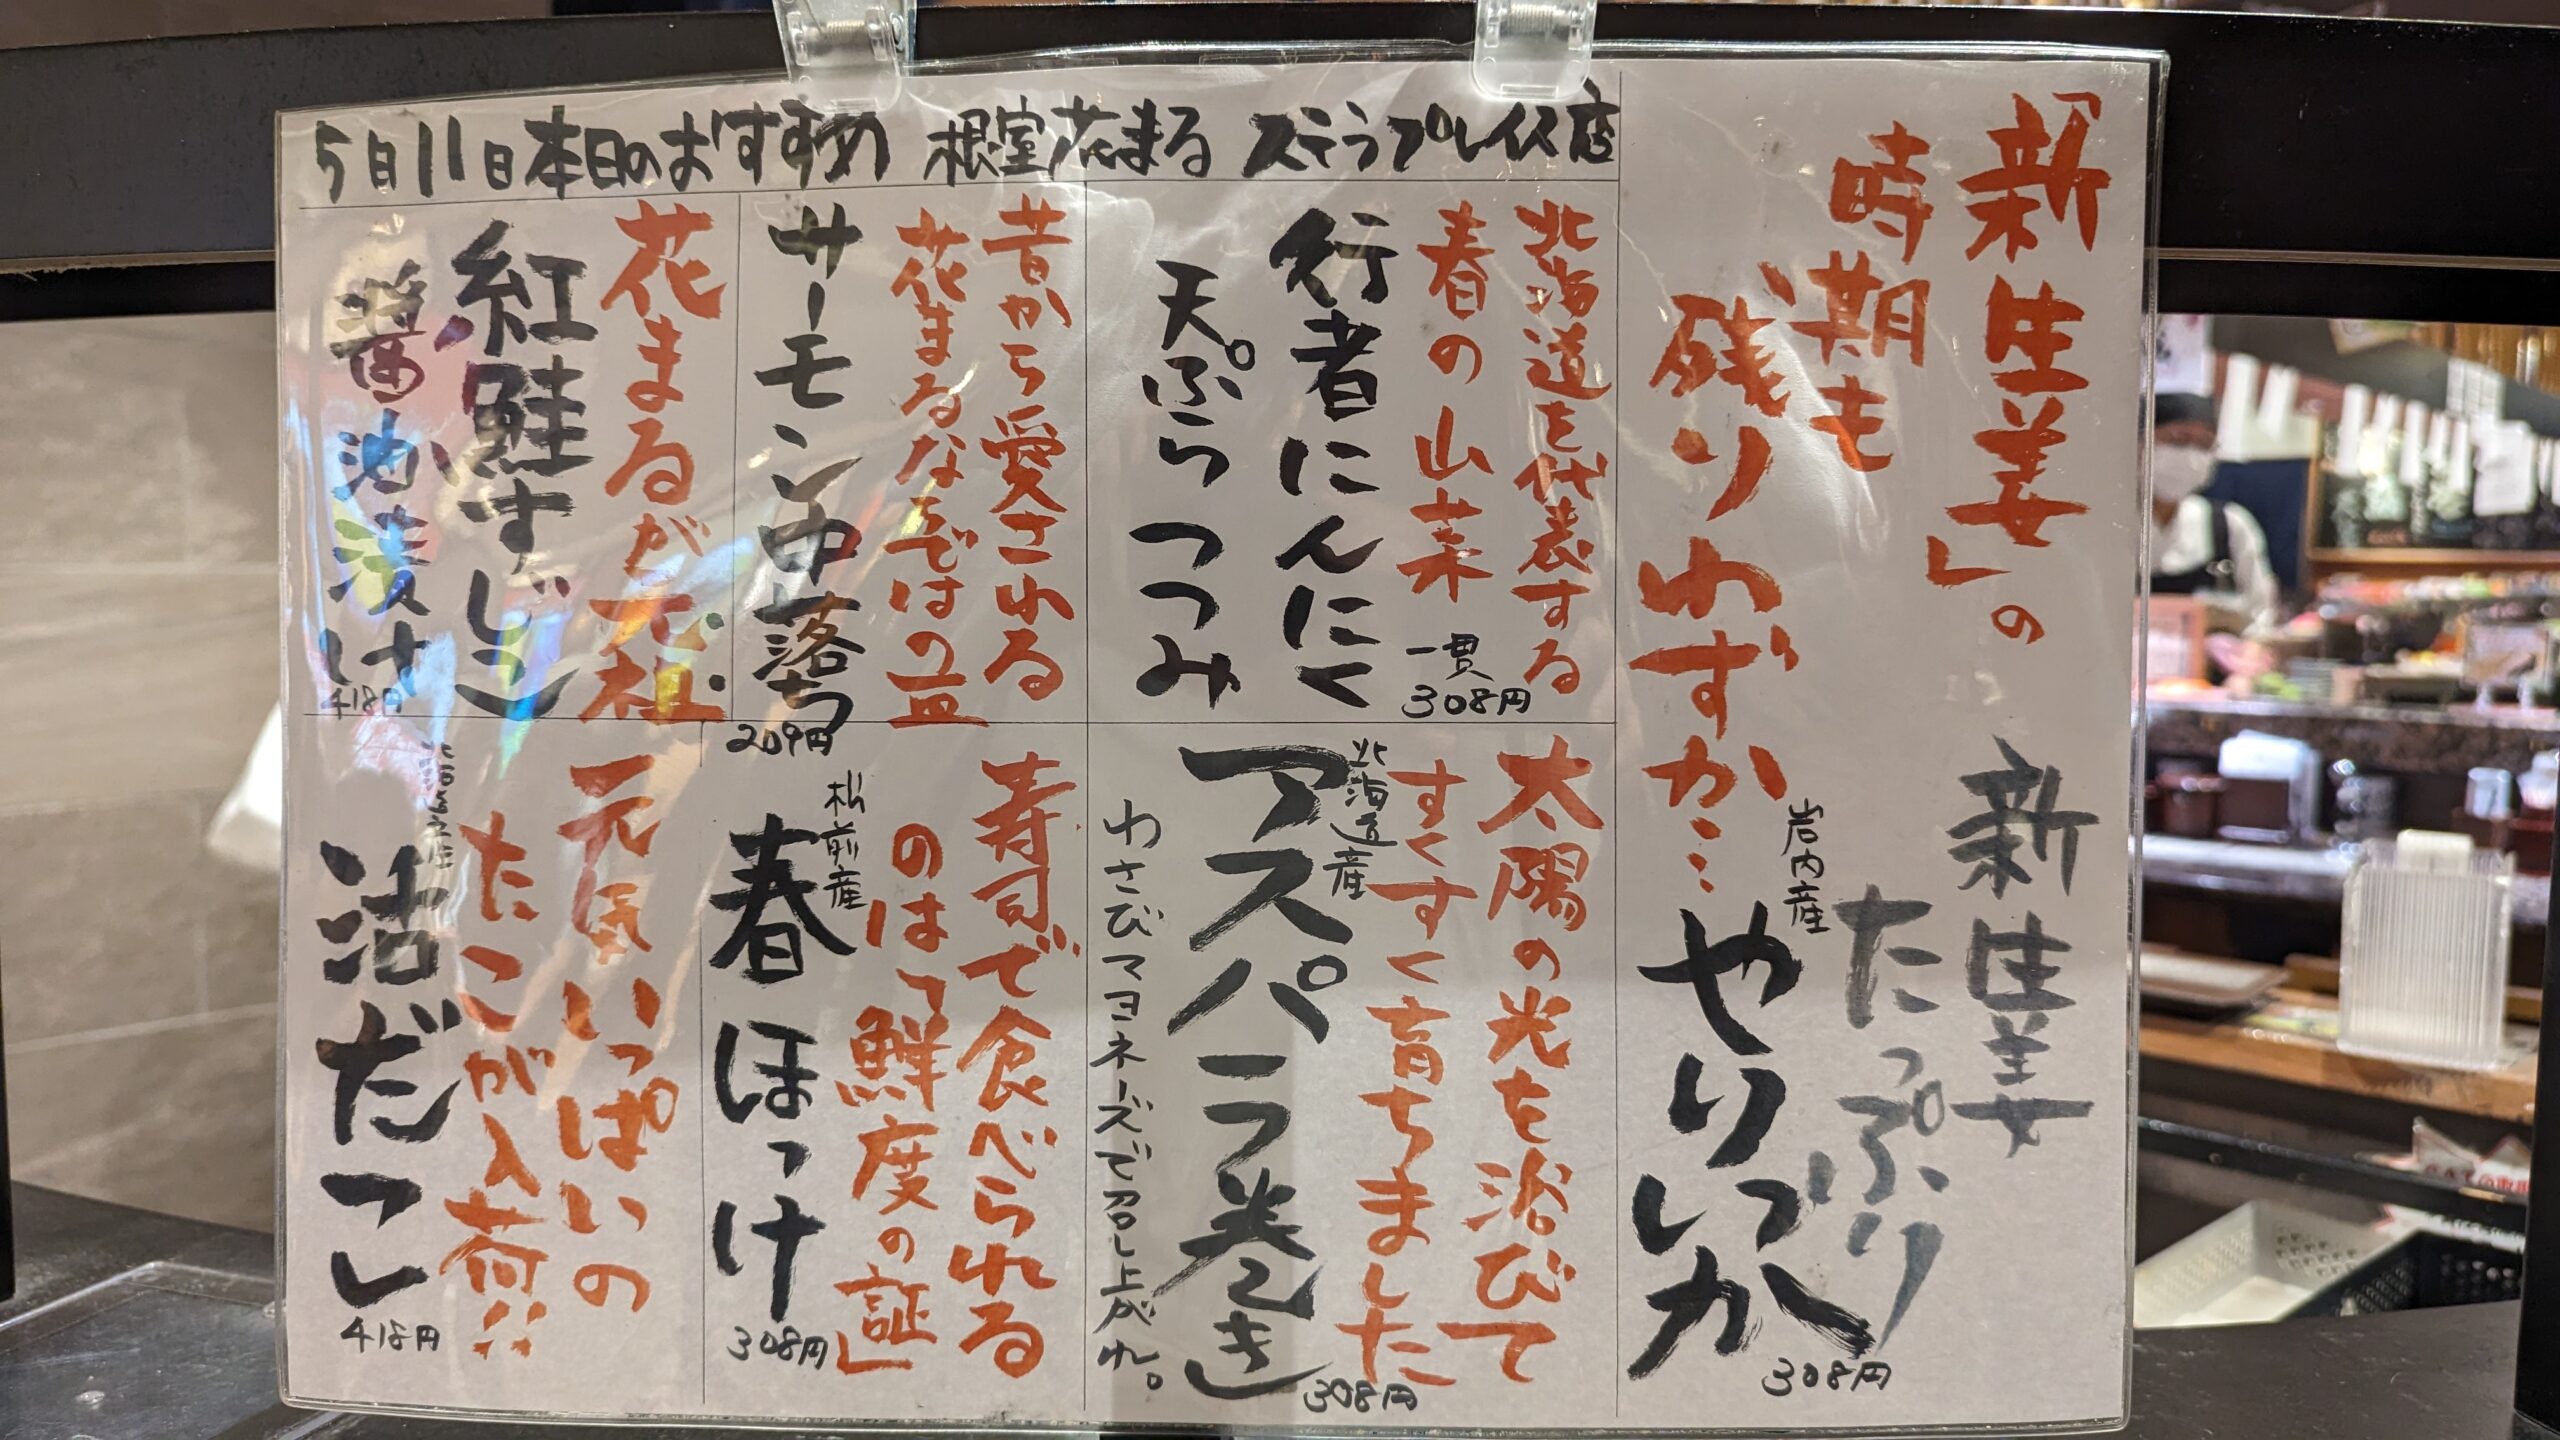 5月11日本日のおすすめ 根室花まる ステラプレイス店
「新生姜」の
時期も
残りわずか…
新生姜
たっぷり
岩内産
やりいか
308円
北海道を代表する
春の山菜
一貫
308円
行者にんにく
天ぷらつつみ
昔から愛される
花まるならではの一皿
サーモン中落ち
209円
花まるが元祖!!
紅鮭すじこ
醤油漬け
418円
太陽の光を浴びて
すくすく育ちました
北海道産
アスパラ巻き
308円
わさびマヨネーズで召し上がれ。
寿司で食べられる
のは「鮮度の証」
松前産
春ほっけ
308円
元気いっぱいの
たこが入荷!!
活だこ
418円